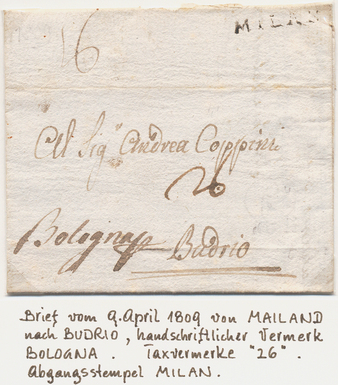 16
MILAN
All Sig.r Andrea Coppini
26
Bologna p
Budrio
Brief vom 9. April 1809 von MAILAND
nach BUDRIO, handschriftlicher Vermerk
BOLOGNA. Taxvermerke "26".
Abgangsstempel MILAN.